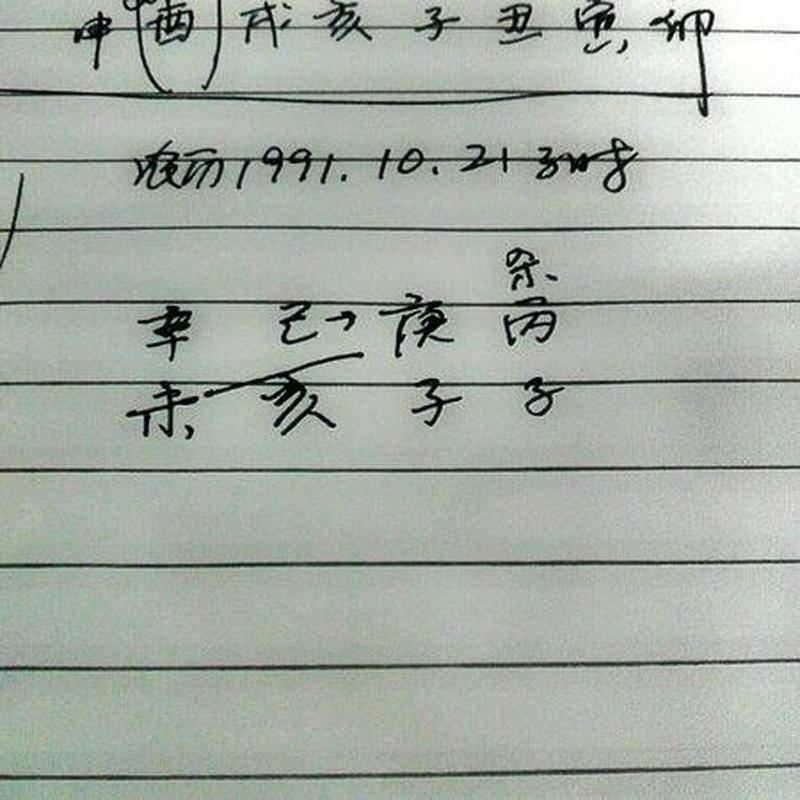 申(酉)戌亥子丑寅卯
农历1991.10.21子时
杀
辛 己→庚 丙
未 亥 子 子